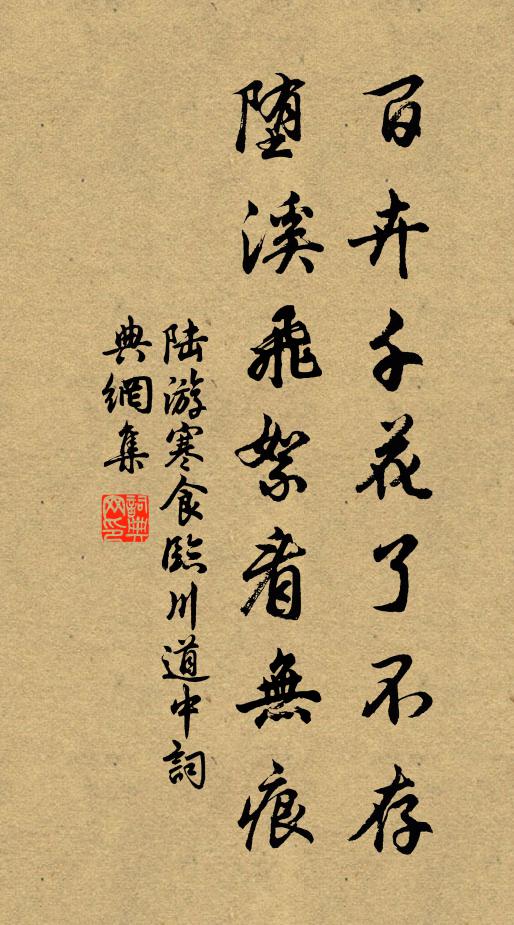 百卉千花了不存
堕溪飛絮看無痕
陆游寒食臨川道中詞
典網集
詞典網印